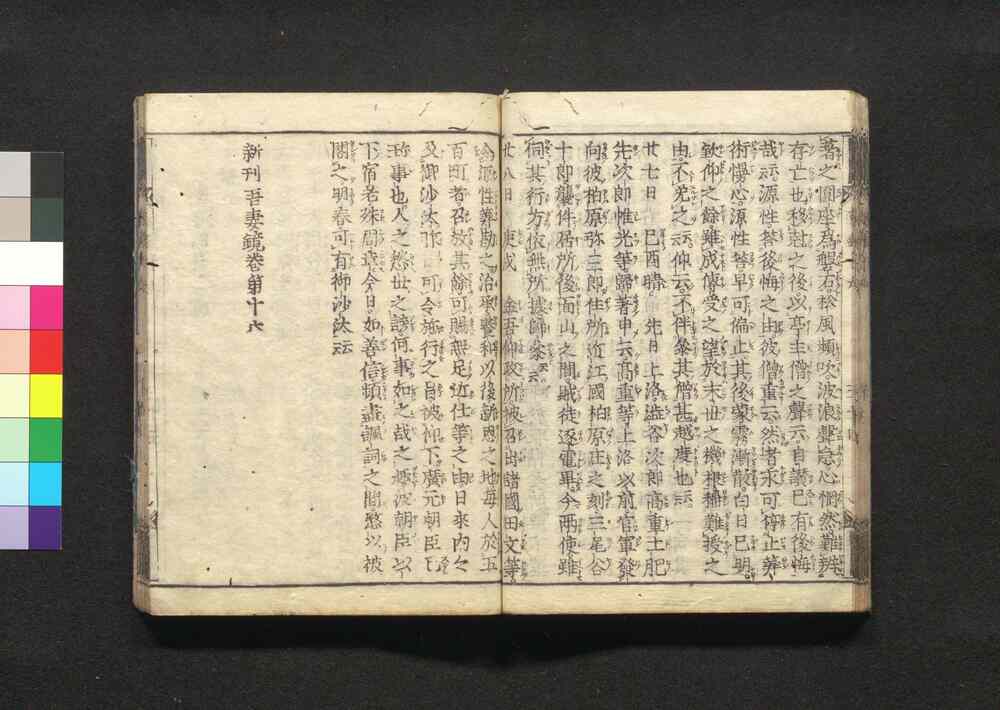 著之圓座爲磐石松風頻吹波浪聲急心惘然難辨
存亡也移尅之後以亭主僧之聲云自讃已有後悔
哉云源性答後悔之由彼僧重云然者永可停止算
術慢心源性答早可停止其後蒙霧漸散白日已明
欽仰之餘雖成傳受之望於末世之機根稱難授之
由不免之云仰云不伴參其僧甚越度也云
廿七日 己酉晴 先日上洛澁谷次郎高重土肥
先次郎惟光等歸著申云高重等上洛以前官軍發
向彼柏原弥三郎住所近江國柏原庄之刻三尾谷
十郎襲件居所後面山之間賊徒逐電畢今兩使雖
伺其行方依無所據歸參云
廿八日 庚戌 金吾仰政所被召出諸國田文等
令源性算勘之治承養和以後新恩之地毎人於五
百町者召放其餘可賜無足近仕等之由日來内々
及御沙汰昨日可令施行之旨被仰下廣元朝臣
珎事也人之愁世之謗何事如之哉之趣彼朝臣以
下宿老殊周章今日如善信頻盡諷詞之間憖以被
閣之明春可有御沙汰云
新刊吾妻鏡巻第十六